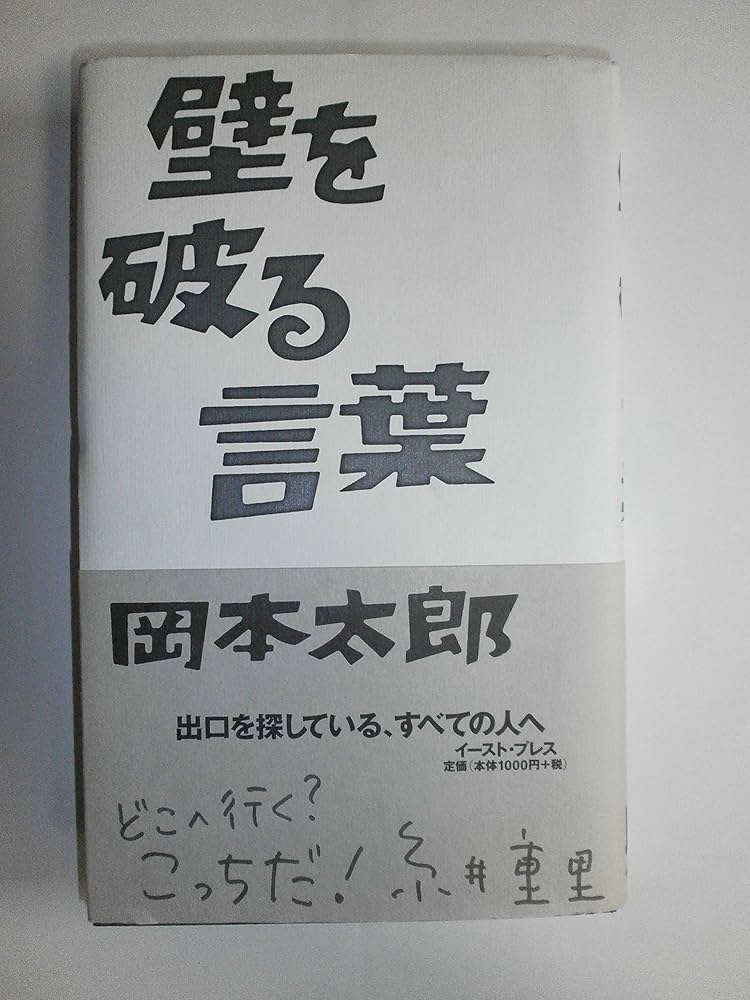 壁を
破る
言葉
岡本太郎
出口を探している、すべての人へ
イースト・プレス
定価(本体1000円+税)
どこへ行く?
こっちだ! 糸井重里